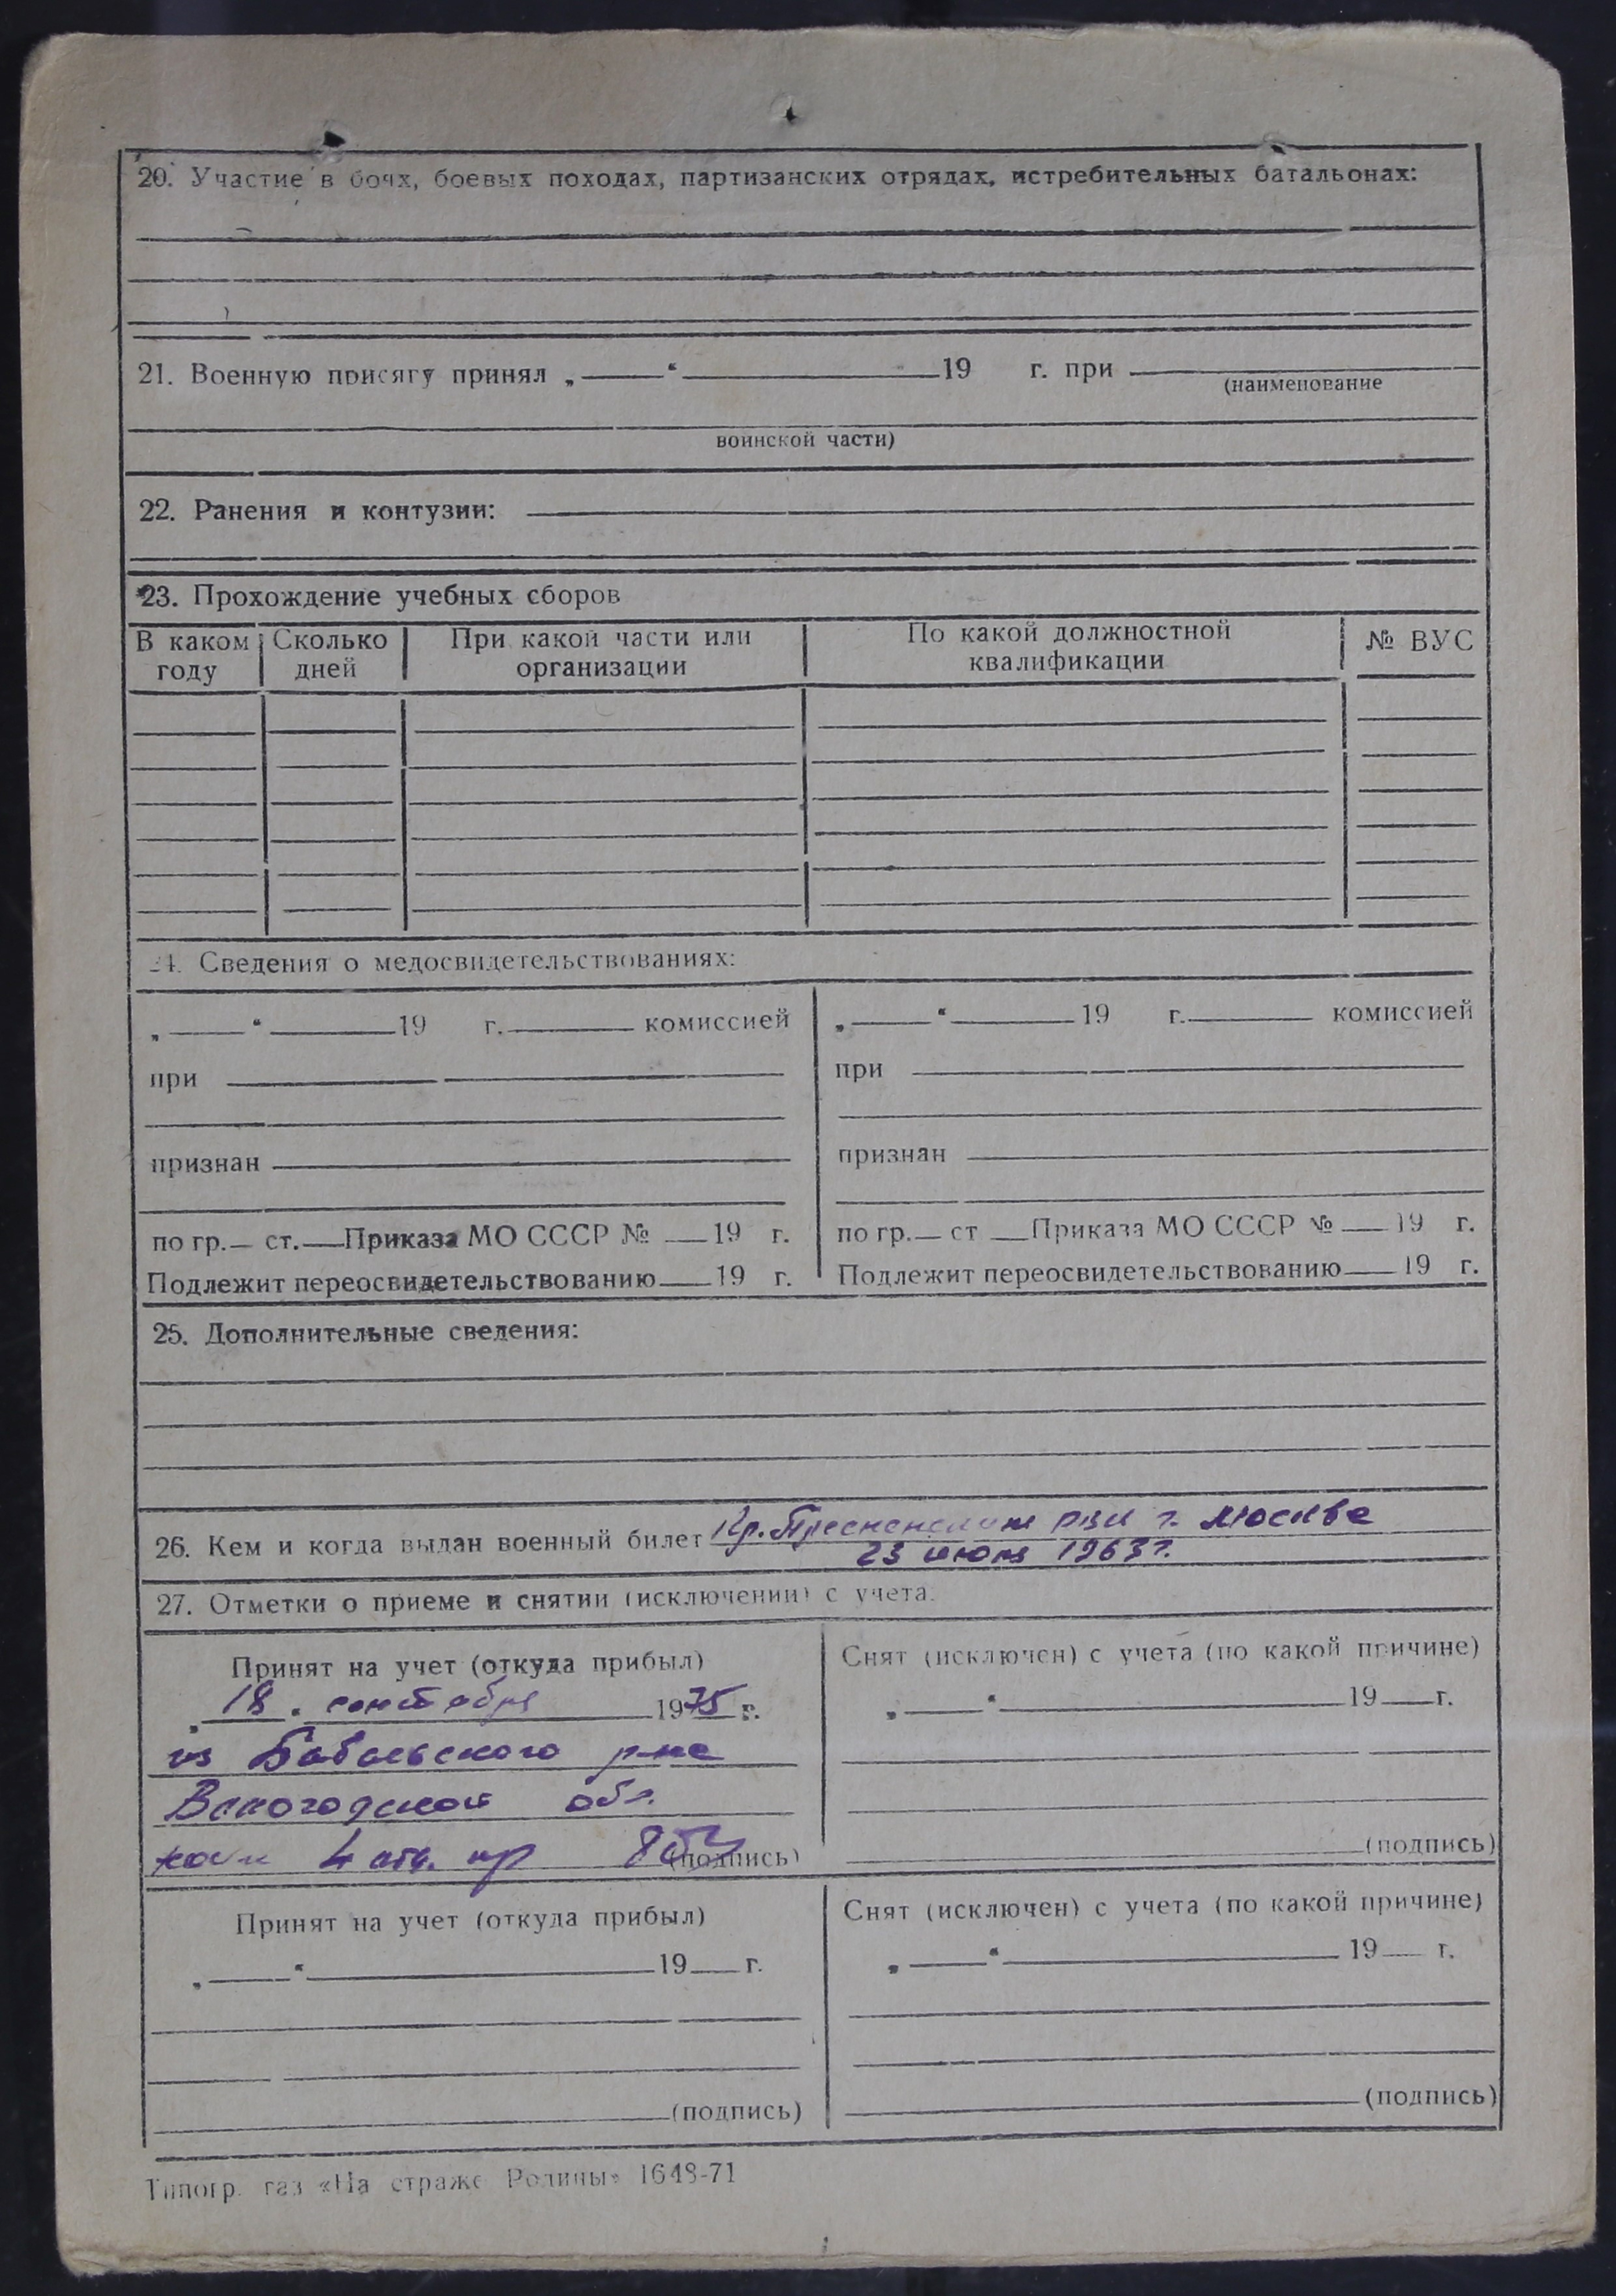 20. Участие в боях, боевых походах, партизанских отрядах, истребительных батальонах:
21. Военную присягу принял „ “ 19 г. при
(наименование
воинской части)
22. Ранения и контузии:
23. Прохождение учебных сборов
В каком году Сколько дней При какой части или организации По какой должностной квалификации № ВУС
24. Сведения о медосвидетельствованиях:
„ “ 19 г. комиссией
при
признан
по гр. ст. Приказа МО СССР № 19 г.
Подлежит переосвидетельствованию 19 г.
„ “ 19 г. комиссией
при
признан
по гр. ст Приказа МО СССР № 19 г.
Подлежит переосвидетельствованию 19 г.
25. Дополнительные сведения:
26. Кем и когда выдан военный билет Кр. Пресненским РВК г. Москвы
23 июня 1963 г.
27. Отметки о приеме и снятии (исключении) с учета.
Принят на учет (откуда прибыл)
18 сентября 1975 г.
из Бабаевского р-на
Вологодской обл.
4 отд.
(подпись)
Снят (исключен) с учета (по какой причине)
„ “ 19 г.
(подпись)
Принят на учет (откуда прибыл)
„ “ 19 г.
(подпись)
Снят (исключен) с учета (по какой причине)
„ “ 19 г.
(подпись)
Типогр. газ «На страже Родины» 1648-71